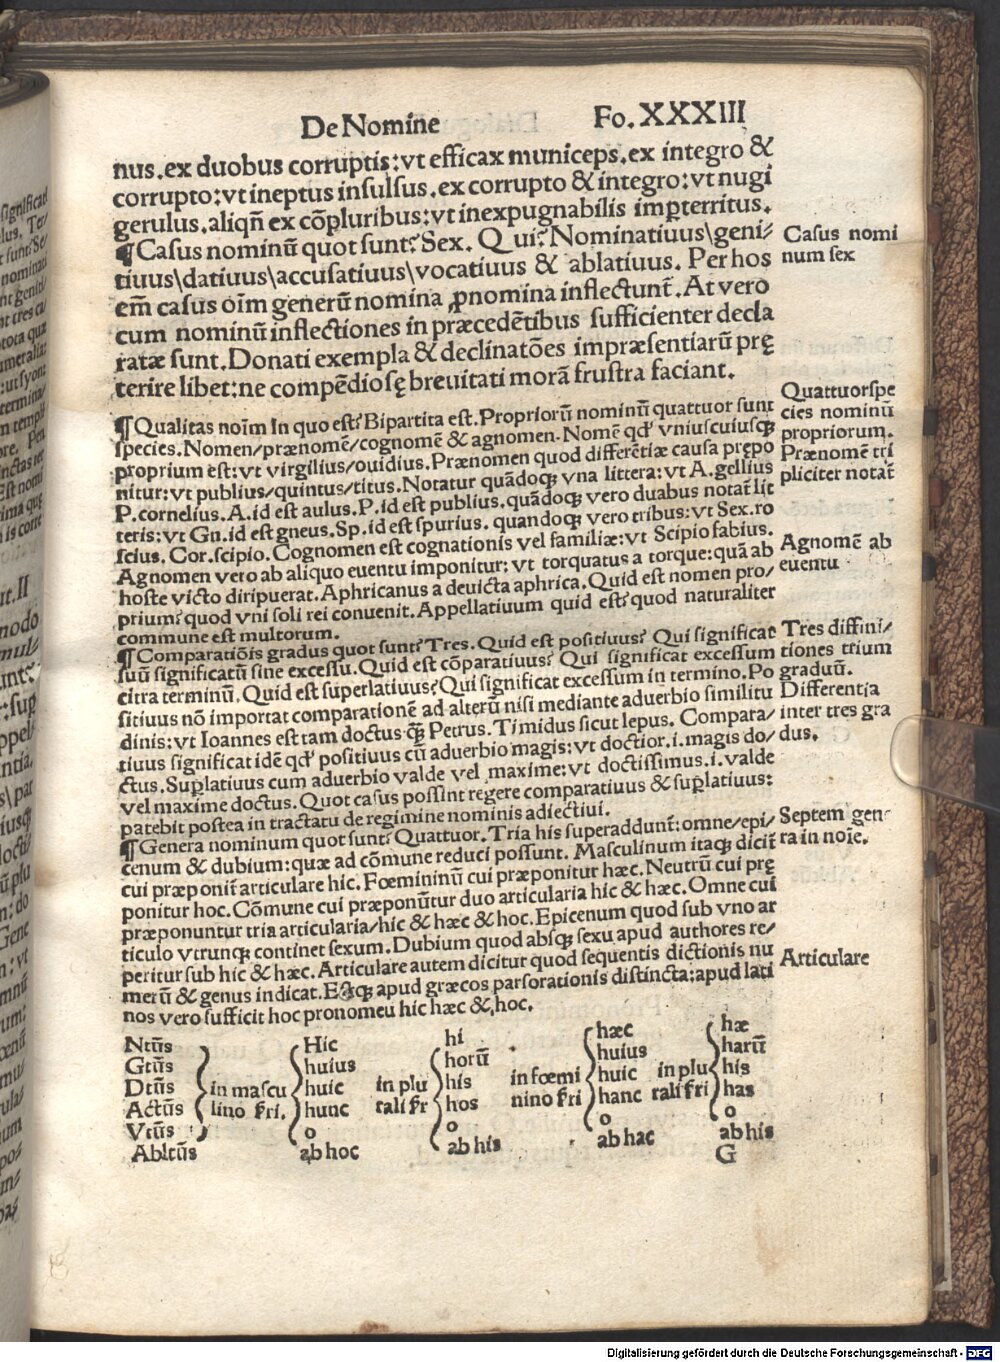 De Nomine Fo. XXXIII
nus.ex duobus corruptis:vt efficax municeps.ex integro &
corrupto:vt ineptus insulsus.ex corrupto & integro:vt nugi
gerulus.aliqñ ex cõpluribus:vt inexpugnabilis imꝑterritus.
¶Casus nominũ quot sunt? Sex. Qui? Nominatiuus\geni/
tiuus\datiuus\accusatiuus\vocatiuus & ablatiuus. Per hos
em̃ casus oĩm generũ nomina ꝓnomina inflectunt̃. At vero
cum nominũ inflectiones in præcedẽtibus sufficienter decla
ratæ sunt. Donati exempla & declinatões impræsentiarũ prę
terire libet:ne compẽdiosę breuitati morã frustra faciant.
Casus nomi
num sex
¶Qualitas noĩm In quo est? Bipartita est. Propriorũ nominũ quattuor sunt
species. Nomen/prænomẽ/cognomẽ & agnomen. Nomẽ qd' vniuscuiusqꝫ
proprium est:vt virgilius/ouidius. Prænomen quod differẽtiæ causa prępo
nitur:vt publius/quintus/titus. Notatur quãdoqꝫ vna littera:vt A.gellius
P.cornelius. A.id est aulus. P.id est publius. quãdoqꝫ vero duabus notat̃ lit
teris:vt Gn.id est gneus. Sp.id est spurius. quandoqꝫ vero tribus:vt Sex.ro
scius. Cor.scipio. Cognomen est cognationis vel familiæ:vt Scipio fabius.
Agnomen vero ab aliquo euentu imponitur: vt torquatus a torque:quã ab
hoste victo diripuerat. Aphricanus a deuicta aphrica. Quid est nomen pro/
prium? quod vni soli rei conuenit. Appellatiuum quid est? quod naturaliter
commune est multorum.
Quattuor spe
cies nominũ
propriorum.
Prænomẽ tri
pliciter notat̃
Agnomẽ ab
euentu
¶Comparatiõis gradus quot sunt? Tres. Quid est positiuus? Qui significat
suũ significatũ sine excessu. Quid est cõparatiuus? Qui significat excessum
citra terminũ. Quid est superlatiuus? Qui significat excessum in termino. Po
sitiuus nõ importat comparationẽ ad alterũ nisi mediante aduerbio similitu
dinis:vt Ioannes est tam doctus qꝫ̃ Petrus. Timidus sicut lepus. Compara/
tiuus significat idẽ qd' positiuus cũ aduerbio magis:vt doctior.i.magis do/
ctus. Suꝑlatiuus cum aduerbio valde vel maxime:vt doctissimus.i.valde
vel maxime doctus. Quot casus possint regere comparatiuus & suꝑlatiuus:
patebit postea in tractatu de regimine nominis adiectiui.
Tres diffini/
tiones trium
graduũ.
Differentia
inter tres gra
dus.
¶Genera nominum quot sunt? Quattuor. Tria his superaddunt̃:omne/epi/
cenum & dubium:quæ ad cõmune reduci possunt. Masculinum itaqꝫ dicit̃
cui præponit̃ articulare hic. Fœmininũ cui præponitur hæc. Neutrũ cui prę
ponitur hoc. Cõmune cui præponũtur duo articularia hic & hæc. Omne cui
præponuntur tria articularia/hic & hæc & hoc. Epicenum quod sub vno ar
ticulo vtrunqꝫ continet sexum. Dubium quod absqꝫ sexu apud authores re/
peritur sub hic & hæc. Articulare autem dicitur quod sequentis dictionis nu
merũ & genus indicat. Estqꝫ apud græcos pars orationis distincta:apud lati
nos vero sufficit hoc pronomen hic hæc & hoc.
Septem gene
ra in noĩe.
Articulare
Ntũs
Gtũs
Dtũs
Actũs
Vtũs
Abltũs
in mascu
lino sri.
Hic
huius
huic
hunc
o
ab hoc
in plu
rali sr
hi
horũ
his
hos
o
ab his
in fœmi
nino sri
hæc
huius
huic
hanc
o
ab hac
in plu
rali sri
hæ
harũ
his
has
o
ab his
G
Digitalisierung gefördert durch die Deutsche Forschungsgemeinschaft - DFG